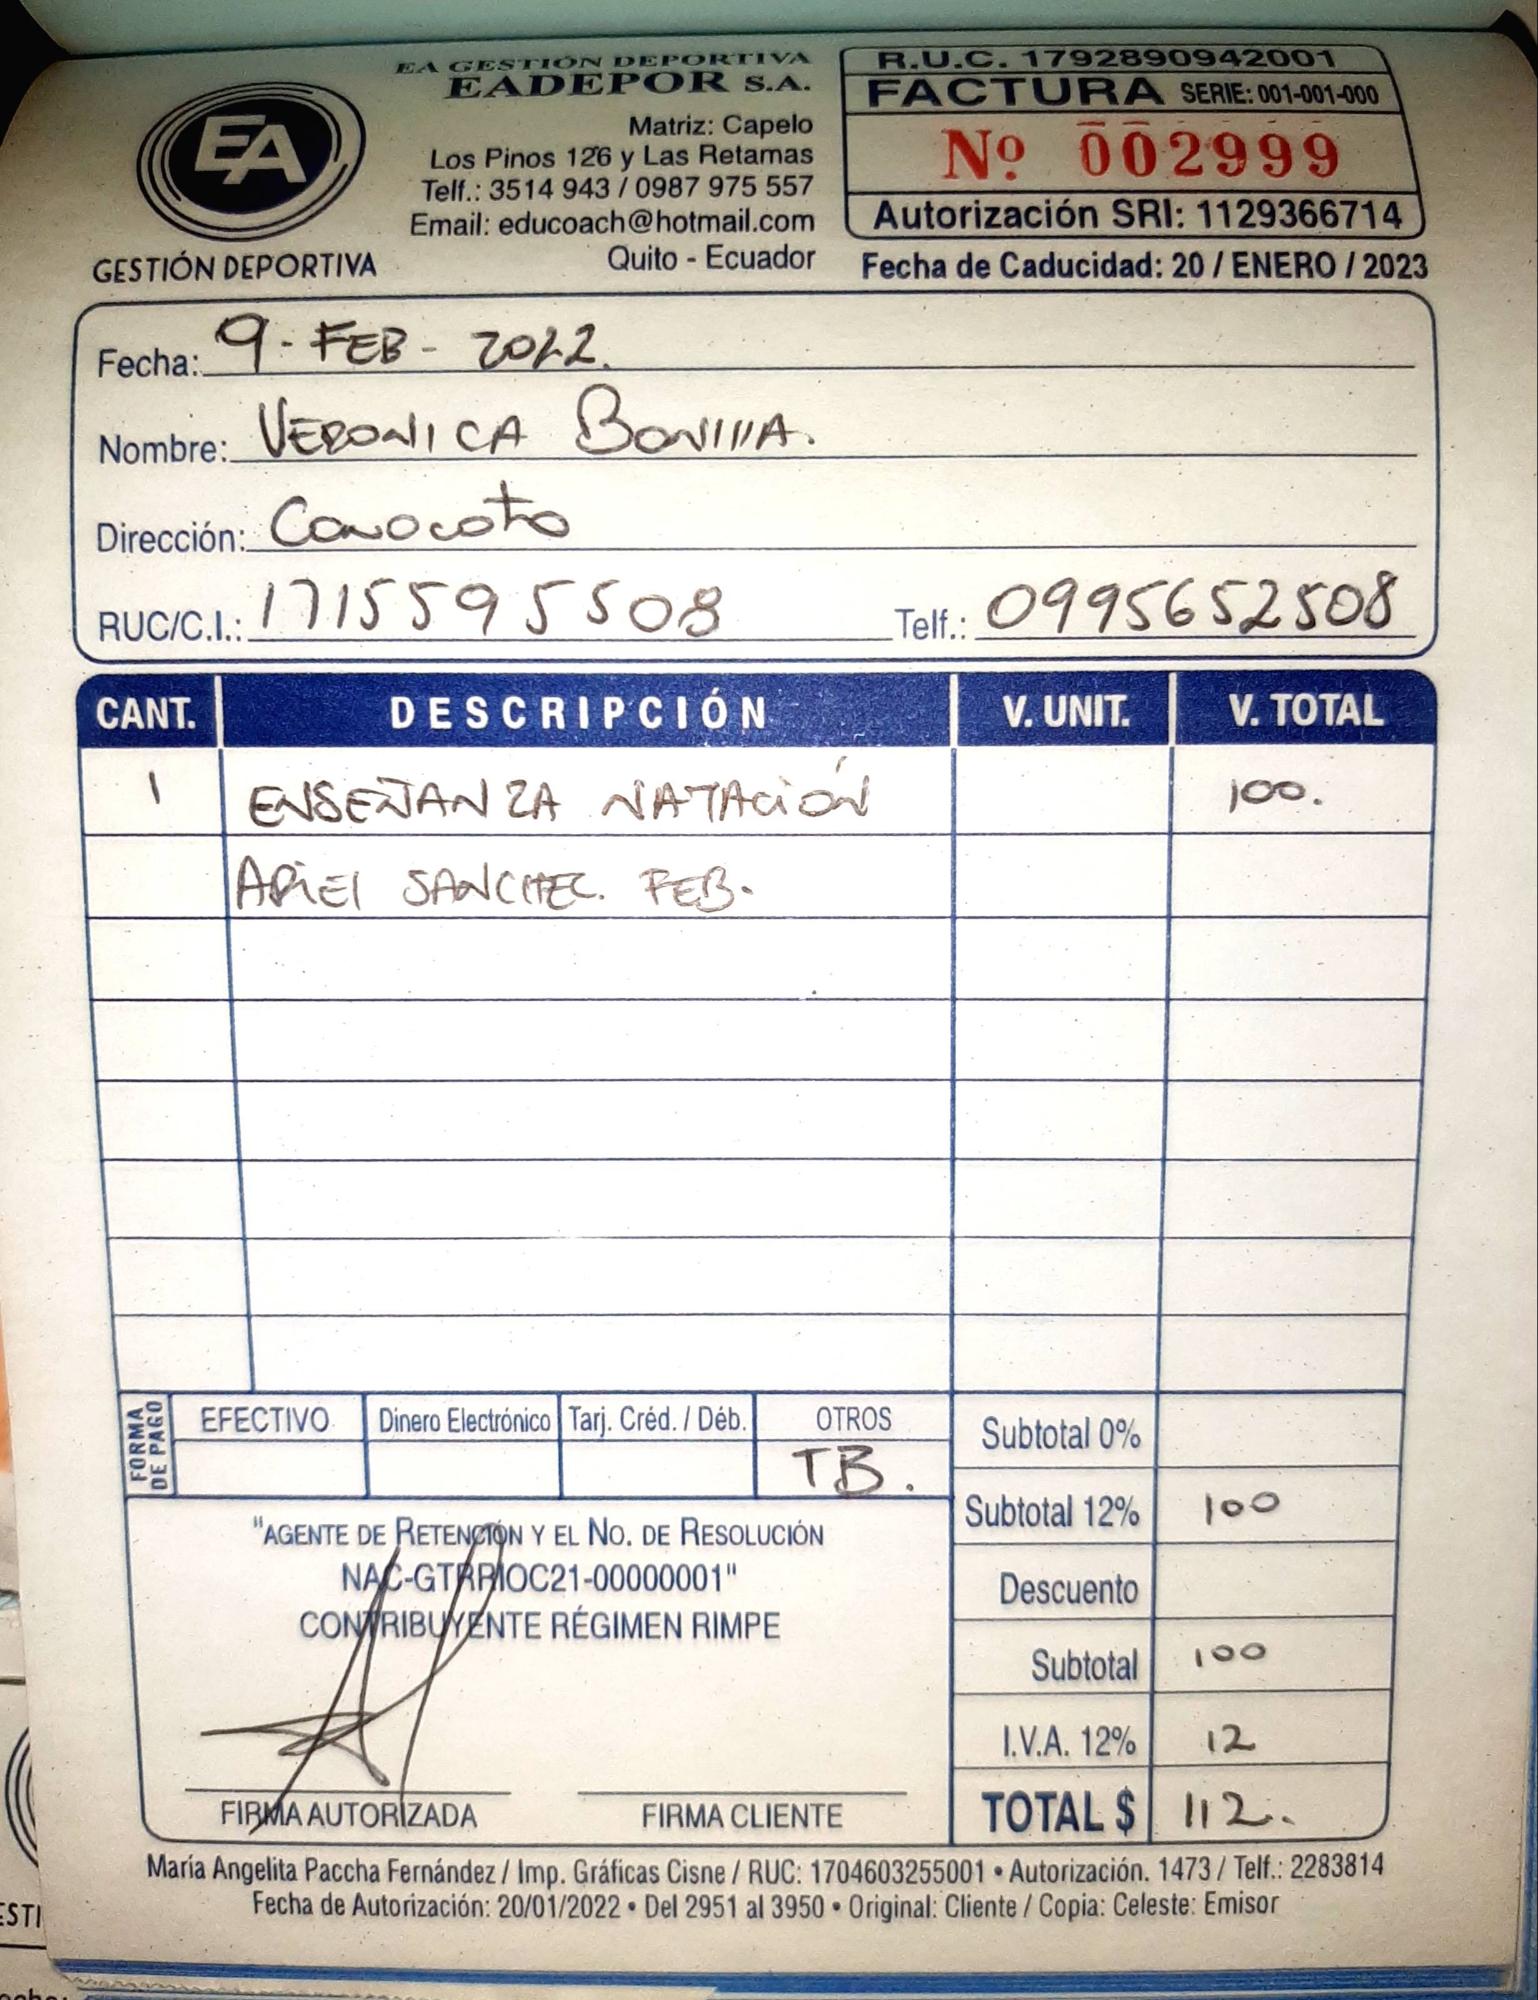 EA
GESTIÓN DEPORTIVA
EA GESTIÓN DEPORTIVA
EADEPOR S.A.
Matriz: Capelo
Los Pinos 126 y Las Retamas
Telf.: 3514 943 / 0987 975 557
Email: educoach@hotmail.com
Quito - Ecuador
R.U.C. 1792890942001
FACTURA SERIE: 001-001-000
Nº 002999
Autorización SRI: 1129366714
Fecha de Caducidad: 20 / ENERO / 2023
Fecha: 9 - FEB - 2022.
Nombre: VERONICA BONILLA.
Dirección: Conocoto
RUC/C.I.: 1715595508 Telf.: 0995652508
CANT. DESCRIPCIÓN V. UNIT. V. TOTAL
1 ENSEÑANZA NATACIÓN 100.
ARIEL SANCHEZ. FEB.
FORMA DE PAGO
EFECTIVO Dinero Electrónico Tarj. Créd. / Déb. OTROS
TB.
Subtotal 0%
Subtotal 12% 100
Descuento
Subtotal 100
I.V.A. 12% 12
TOTAL $ 112.
"AGENTE DE RETENCIÓN Y EL NO. DE RESOLUCIÓN
NAC-GTRRIOC21-00000001"
CONTRIBUYENTE RÉGIMEN RIMPE
FIRMA AUTORIZADA FIRMA CLIENTE
María Angelita Paccha Fernández / Imp. Gráficas Cisne / RUC: 1704603255001 • Autorización. 1473 / Telf.: 2283814
Fecha de Autorización: 20/01/2022 • Del 2951 al 3950 • Original: Cliente / Copia: Celeste: Emisor